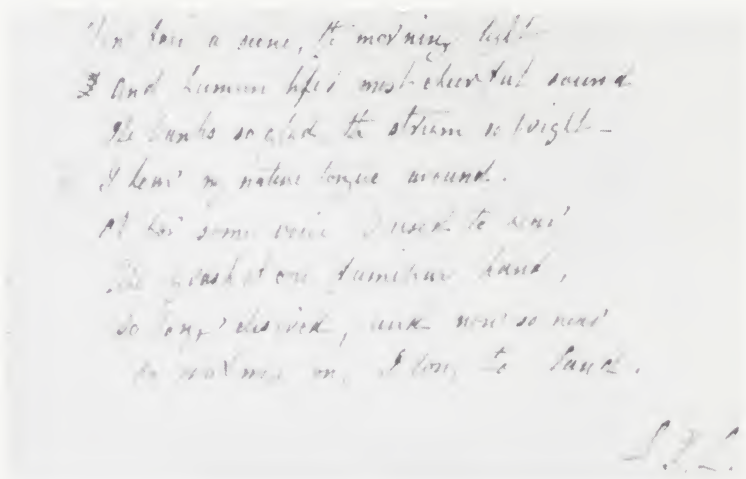 fair a scene, the morning light
And human life's most cheerful sound
The banks so glad the stream so bright –
I hear my native tongue around.
for some voice I used to hear
The grasp of one familiar hand,
So long desired, and now so near
on, I long to land.